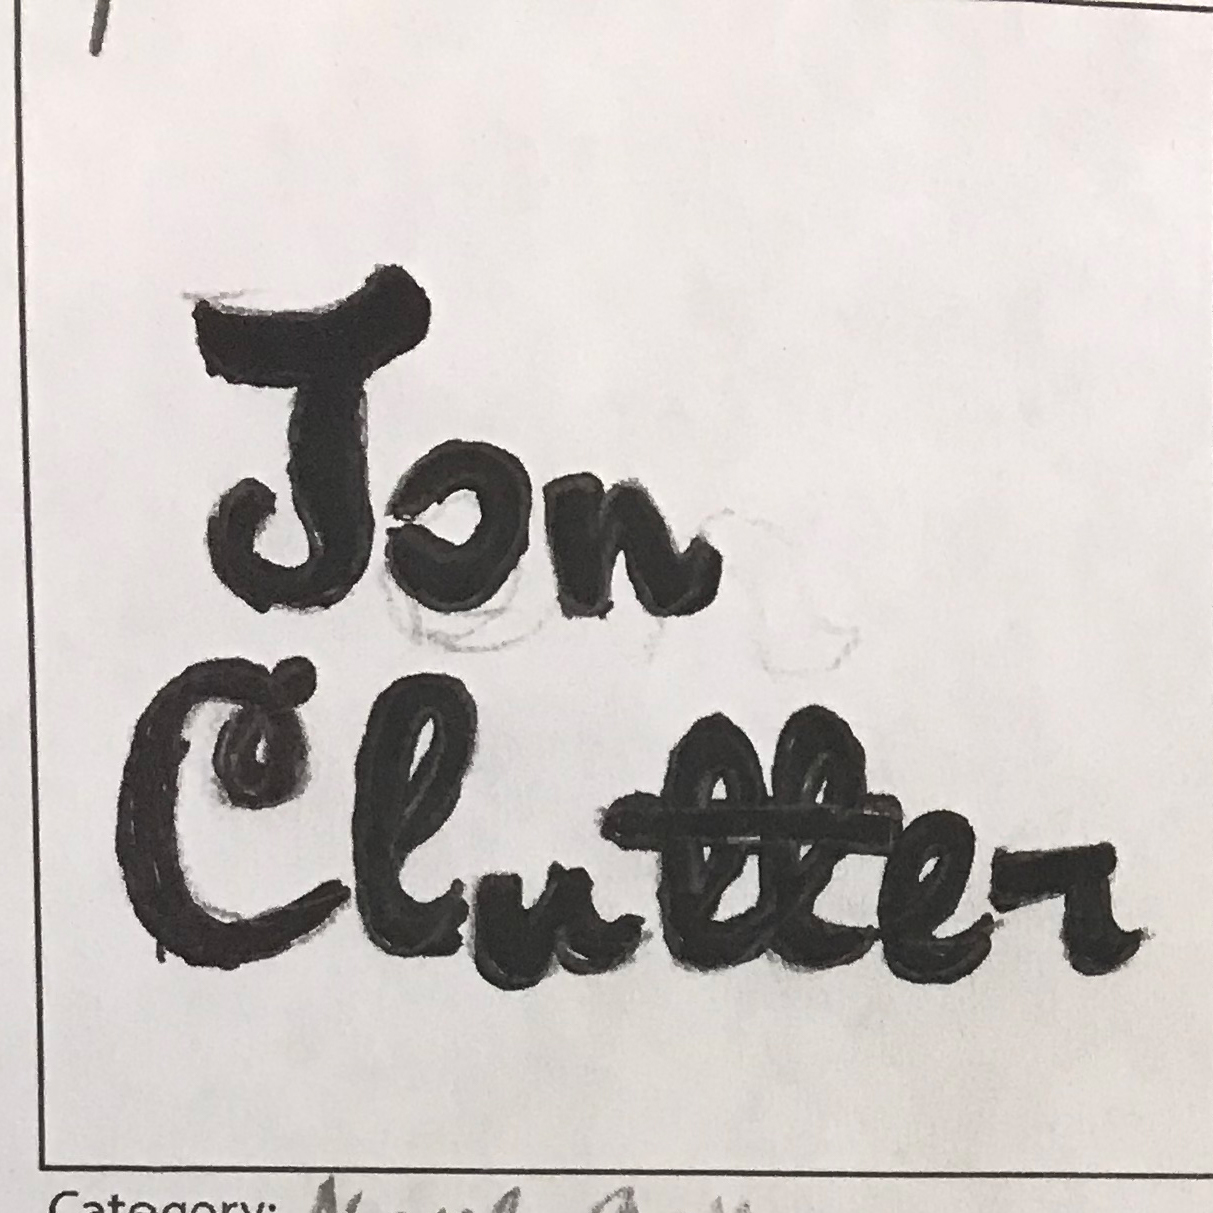 Jon
Clutter
Category: